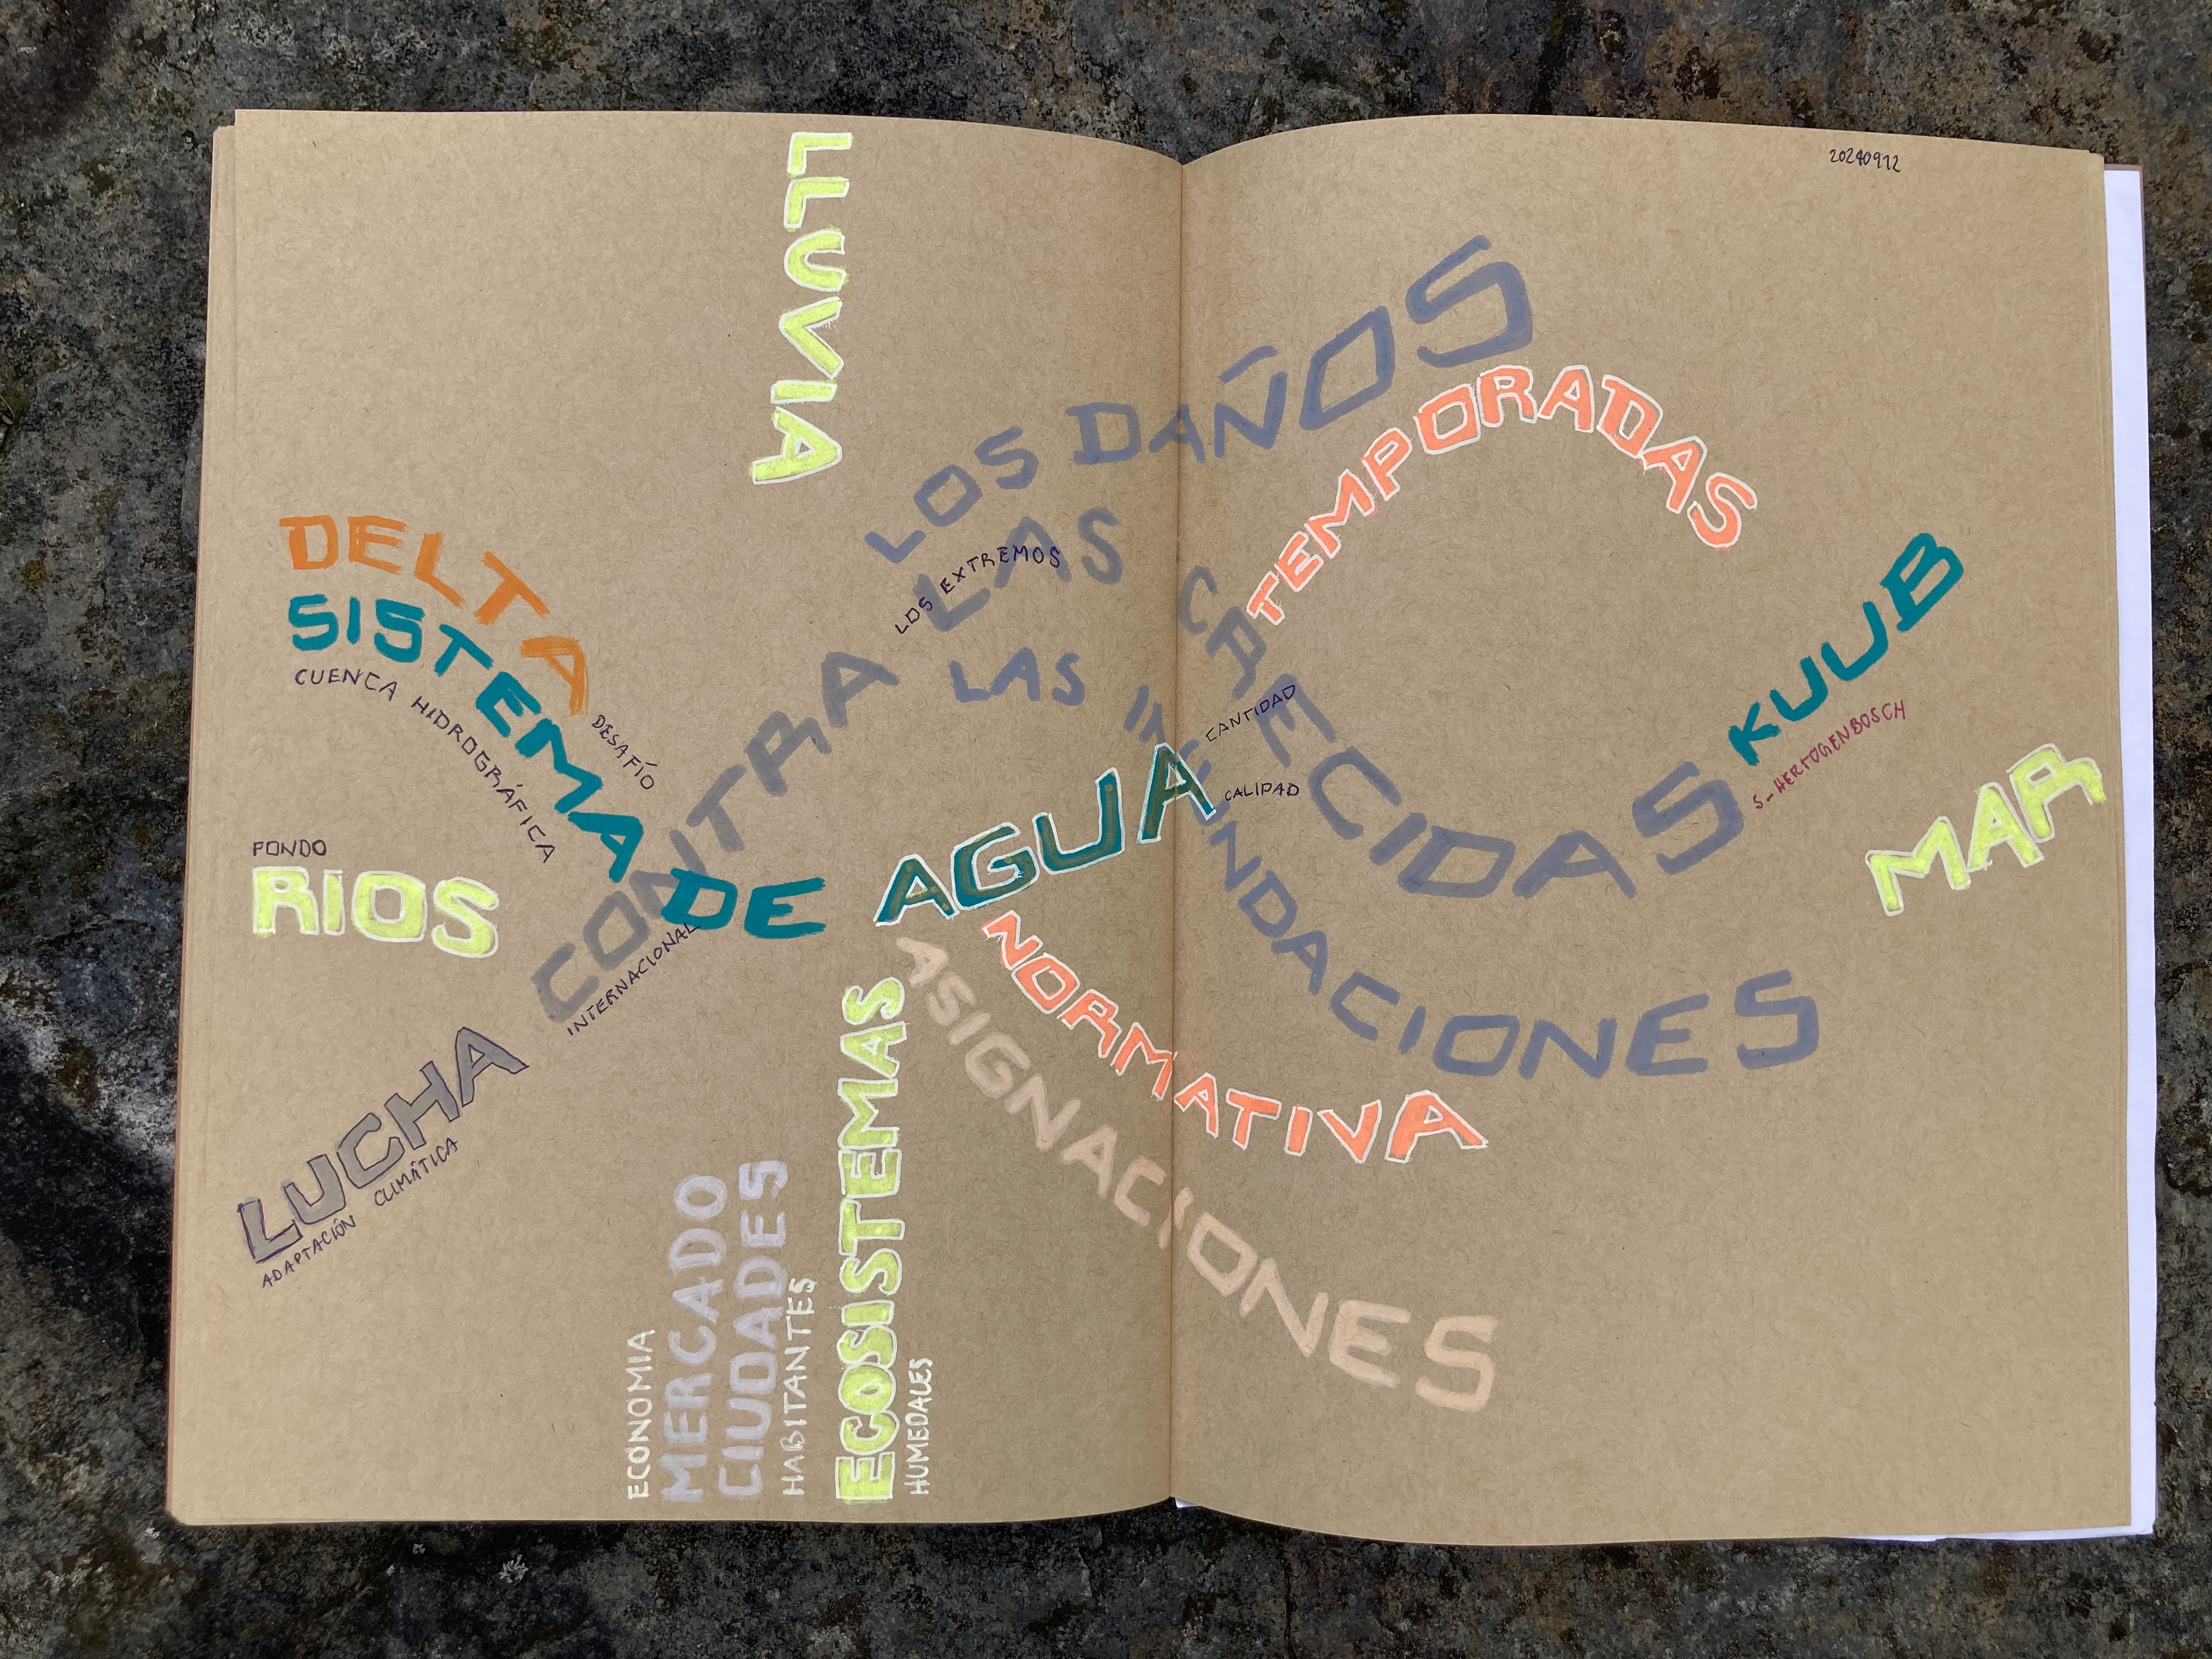 20240912
LLUVIA
LOS DAÑOS
TEMPORADAS
LOS EXTREMOS
LAS CRECIDAS
LAS INUNDACIONES
DELTA
SISTEMA DE AGUA
DESAFÍO
CUENCA HIDROGRÁFICA
CANTIDAD
CALIDAD
KUUB
S-HERTOGENBOSCH
MAR
FONDO
RIOS
LUCHA CONTRA
INTERNACIONAL
ADAPTACIÓN CLIMÁTICA
NORMATIVA
ASIGNACIONES
ECONOMIA
MERCADO
CIUDADES
HABITANTES
ECOSISTEMAS
HUMEDALES